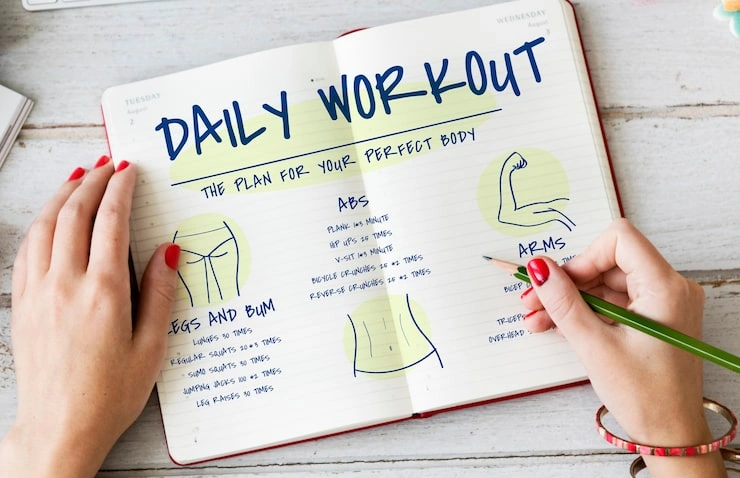 TUESDAY
August
2
WEDNESDAY
August
3
DAILY WORKOUT
THE PLAN FOR YOUR PERFECT BODY
ABS
PLANK 1*3 MINUTE
HIP UPS 25 TIMES
V-SIT 1*3 MINUTE
BICYCLE CRUNCHES 25 *2 TIMES
REVERSE CRUNCHES 25 *2 TIMES
ARMS
TIMES
BICEP
TRICEPS
OVERHEAD
LEGS AND BUM
LUNGES 30 TIMES
REGULAR SQUATS 20*3 TIMES
SUMO SQUATS 30 TIMES
JUMPING JACKS 100 *2 TIMES
LEG RAISES 30 TIMES